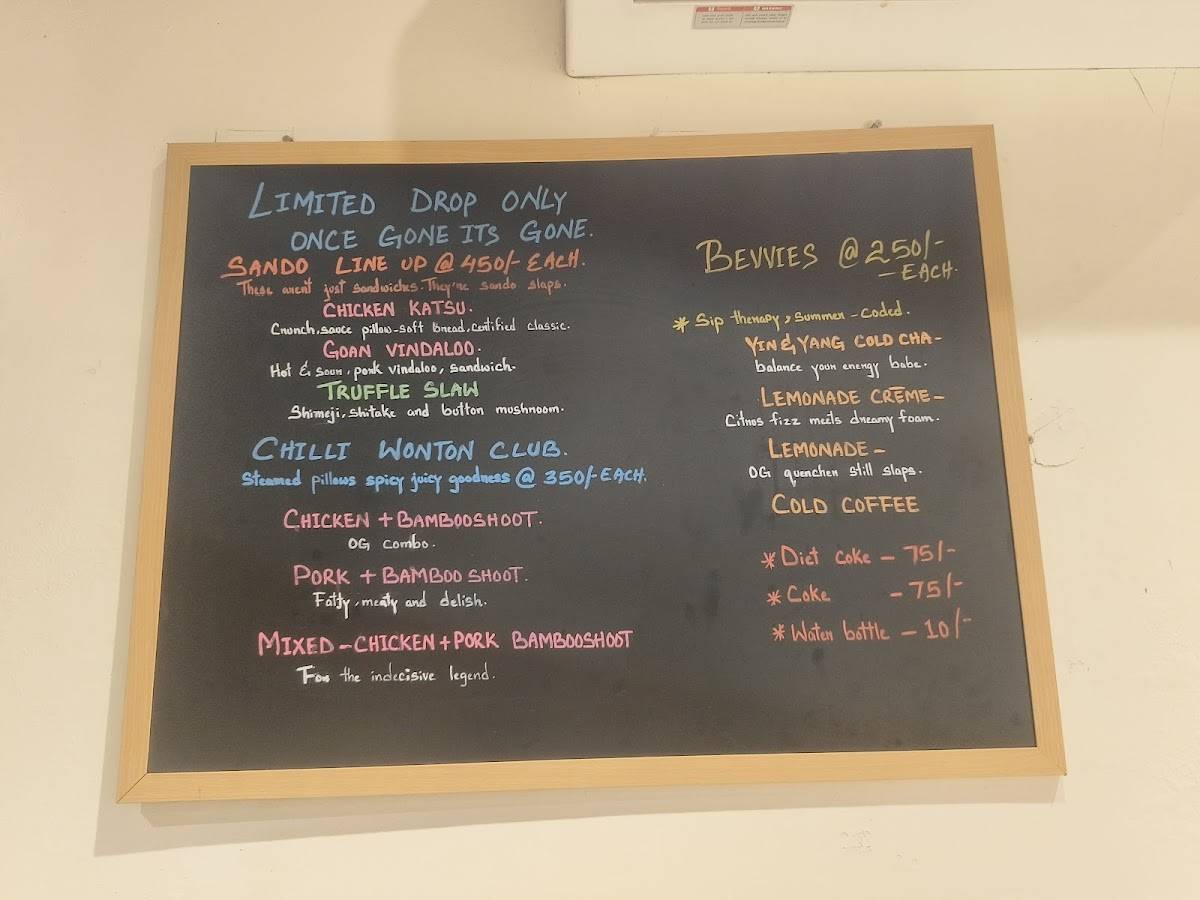 LIMITED DROP ONLY
ONCE GONE ITS GONE.
SANDO LINE UP @ 450/- EACH.
These aren't just sandwiches. They're sando slaps.
CHICKEN KATSU.
Crunch, sauce pillow-soft bread. Certified classic.
GOAN VINDALOO.
Hot & sour, pork vindaloo, sandwich.
TRUFFLE SLAW
Shimeji, shitake and button mushroom.
CHILLI WONTON CLUB.
Steamed pillows spicy juicy goodness @ 350/- EACH.
CHICKEN + BAMBOOSHOOT.
OG combo.
PORK + BAMBOO SHOOT.
Fatty, meaty and delish.
MIXED - CHICKEN + PORK BAMBOOSHOOT
For the indecisive legend.
BEVVIES @ 250/-
- EACH.
* Sip therapy, summer-coded.
YIN & YANG COLD CHA-
balance your energy babe.
LEMONADE CRĒME-
Citrus fizz meets dreamy foam.
LEMONADE -
OG quencher still slaps.
COLD COFFEE
* Diet coke - 75/-
* Coke - 75/-
* Water bottle - 10/-